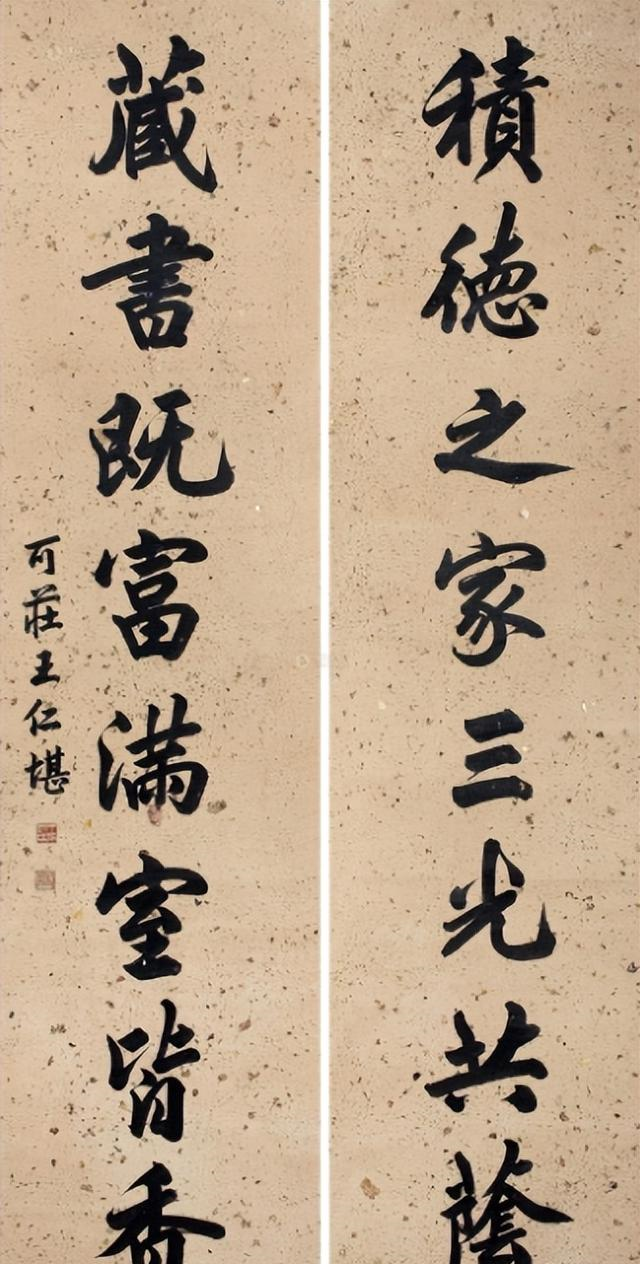 積徳之家三光共蔭
藏書既富滿室皆香
可莊王仁堪